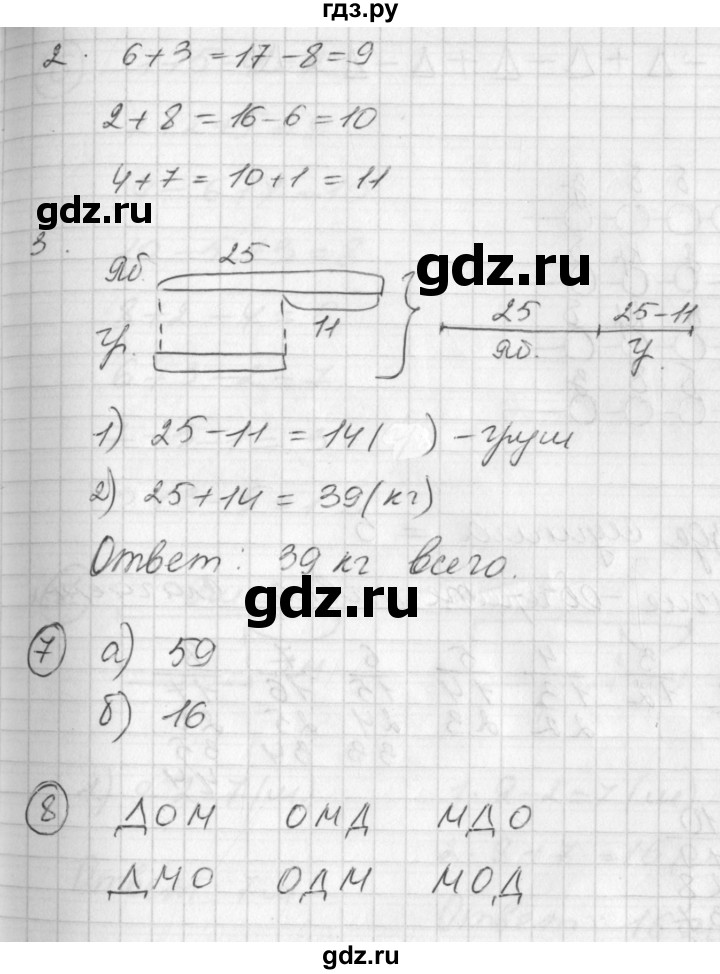 гдз.ру
2. 6+3 = 17-8 = 9
2+8 = 16-6 = 10
4+7 = 10+1 = 11
gdz.ru
3.
Яб. 25
gdz.ru
11
25 25-11
Гр.
Яб. Гр.
1) 25-11 = 14( ) - груш
2) 25+14 = 39(кг)
Ответ: 39 кг всего.
gdz.ru
7 а) 59
б) 16
8 ДОМ ОМД МДО
ДМО ОДМ МОД
gdz.ru